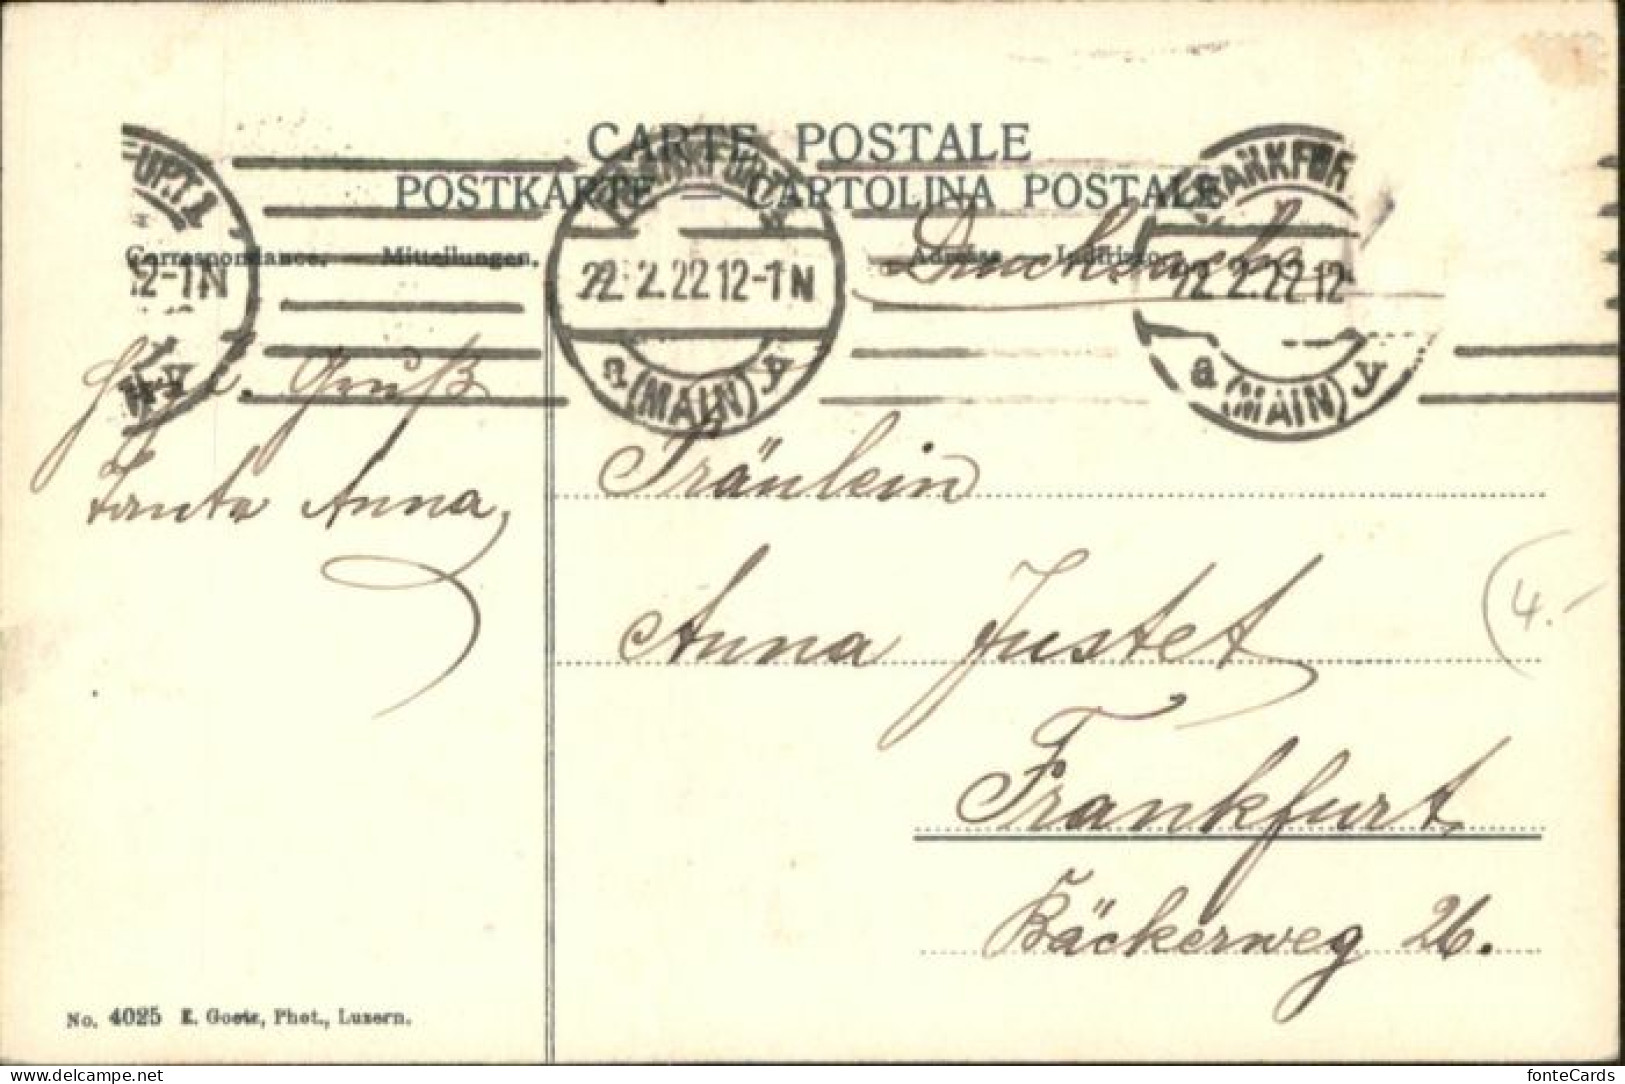 CARTE POSTALE
POSTKARTE — CARTOLINA POSTALE
Correspondance. — Mitteilungen.
Adresse — Indirizzo
Drucksache
FURT 1
12-1N
FRANKFURT 1
22.2.22 12-1N
a (MAIN)
FRANKFUR
22.2.22 12
a (MAIN)
Gruß
Tante Anna,
Fräulein
Anna Justet
Frankfurt
Bäckerweg 26.
4.-
No. 4025 E. Goetz, Phot., Luzern.
delcampe.net
fonteCards